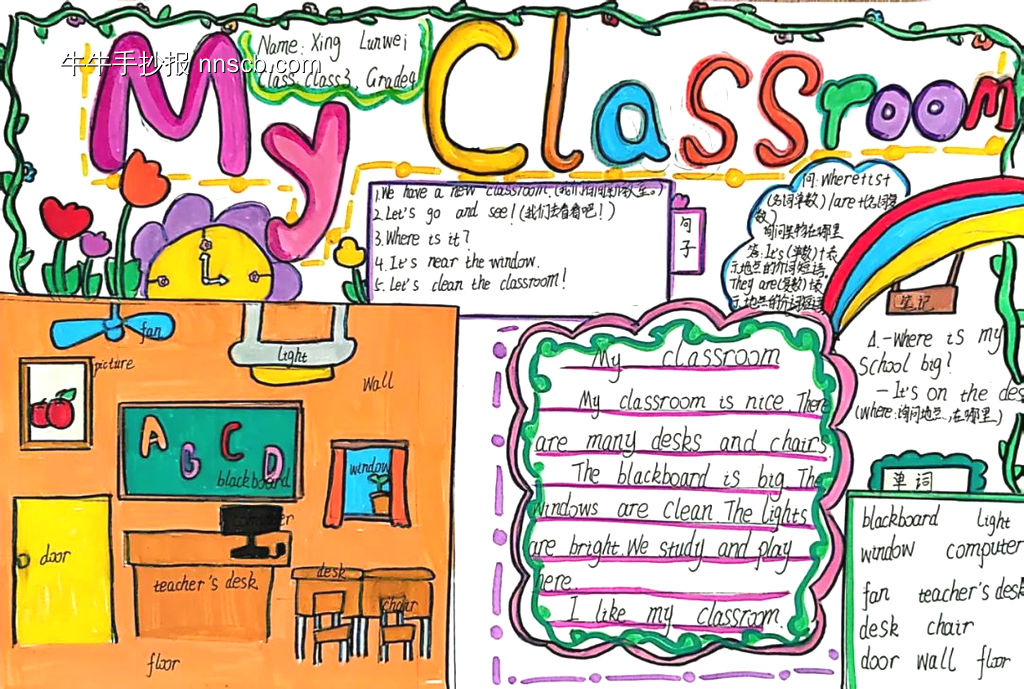 My Classroom
牛牛手抄报 nnscb.com
Name: Xing Lunwei
Class: Class3, Grade4
1.We have a new classroom.(我们有间新教室。)
2 Let's go and see!(我们去看看吧!)
3.Where is it?
4.It's near the window.
5. Let's clean the classroom!
句
子
问:Where is+
(名词单数)/are+(名词复
数)
询问某物在哪里
答:It's(单数)+表
示地点的介词短语.
They are(复数)+表
示地点的介词短语
笔记
A.-Where is my
School big?
-It's on the des
(where:询问地点,在哪里)
fan
light
picture
wall
A B C D
blackboard
window
computer
door
teacher's desk
desk
chair
floor
My classroom
My classroom is nice. There
are many desks and chairs.
The blackboard is big. The
windows are clean The lights
are bright. We study and play
here.
I like my classroom.
单词
blackboard light
window computer
fan teacher's desk
desk chair
door wall floor